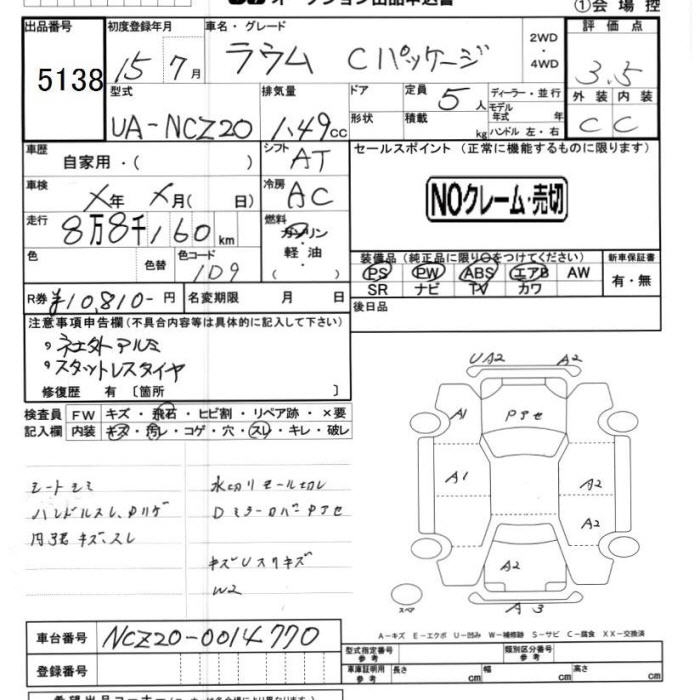 オークション出品申込書
①会場控
出品番号 初度登録年月 車名・グレード 2WD・4WD 評価点
5138 15年7月 ラウム Cパッケージ 3.5
型式 排気量 ドア 定員 5人 ディーラー・並行 外装 内装
UA-NCZ20 1.49cc 形状 積載 kg モデル年式 年 C C
ハンドル 左・右
車歴 シフト セールスポイント (正常に機能するものに限ります)
自家用・( ) AT
車検 冷房 NOクレーム・売切
X年 X月( 日) AC
走行 燃料
8万8千160km ガソリン・軽油・( )
色 色替 色コード 装備品 (純正品に限り○をつけてください) 新車保証書
1D9 PS PW ABS エアB AW 有・無
SR ナビ TV カワ
R券 ¥10,810-円 名変期限 月 日 後日品
注意事項申告欄(不具合内容等は具体的に記入して下さい)
・社外アルミ
・スタットレスタイヤ
修復歴 有 〔箇所 〕
検査員 FW キズ・飛石・ヒビ割・リペア跡・×要
記入欄 内装 キズ・汚レ・コゲ・穴・スレ・キレ・破レ
UA2 A2
A1
A1 A2
A2
A2
A3
シートシミ 水切リモール切レ
ハンドルスレ、
内張キズ、スレ
W2
スペア
A-キズ E-エクボ U-凹み W-補修跡 S-サビ C-腐食 XX-交換済
車台番号 NCZ20-0014770
型式指定番号 参考 類別区分番号 参考
登録番号 車庫証明用 参考 長さ cm 幅 cm 高さ cm